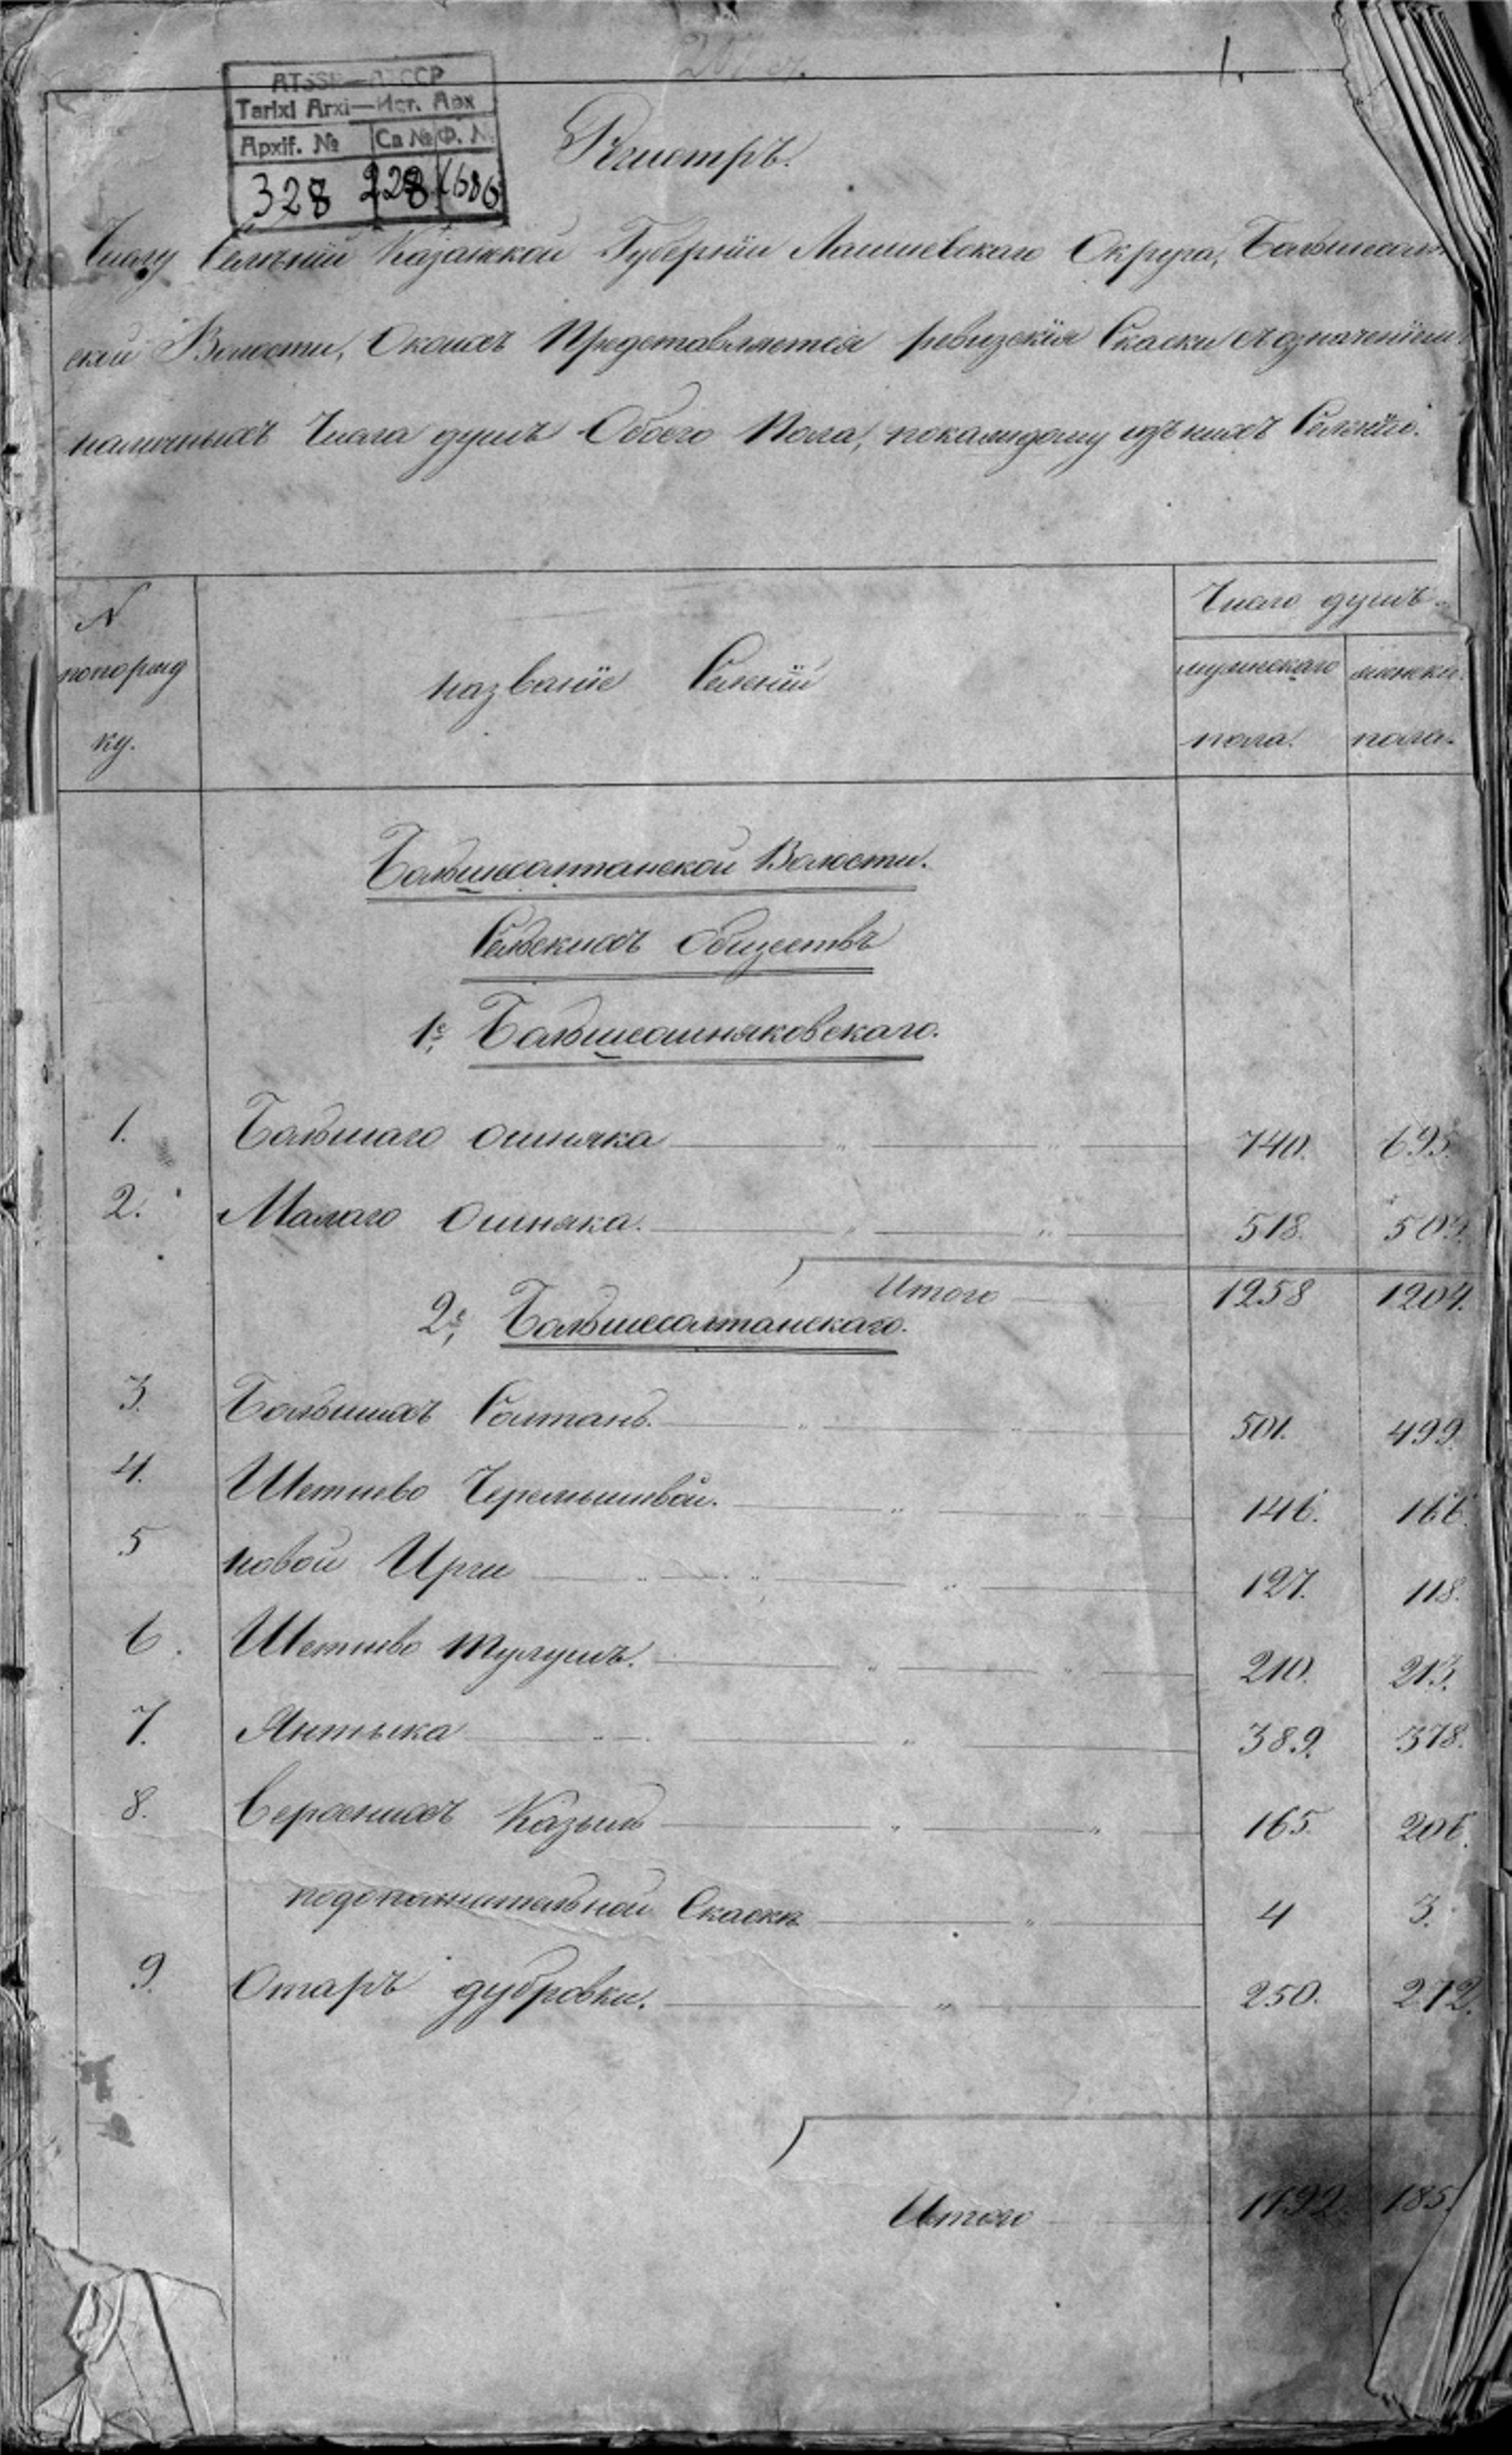 1.
ATSSR—АТССР
Tarixi Arxi—Ист. Арх
Арxif. № Св № Ф. №
328 228 1686
Регистръ.
Числу Селеній Казанской Губерніи Лаишевскаго Округа, Большесалтан-
ской Волости, О коихъ Представляются ревизскія Скаски съ означеніемъ
наличныхъ Числа душъ Обоего Пола, покаждому изъ нихъ Селенію.
№ попоряд ку.
названіе Селеній
Число душъ
мужескаго пола.
женска пола.
Большесалтанской Волости.
Сельскихъ Обществъ
1е, Большеошняковскаго.
1. Большаго Ошняка 740. 695.
2. Малаго Ошняка. 518. 509.
Итого 1258 1204.
2е, Большесалтанскаго.
3. Большихъ Солтанъ. 501. 499.
4. Шетнево Черемышевой. 146. 166.
5 новой Ирги 127. 118.
6. Шетнево Тулушъ. 210. 213.
7. Янтыка 389. 378.
8. Казыль 165. 206.
подополнительной Скаски 4 3.
9. Отаръ дубровки. 250. 272.
Итого 1792. 185